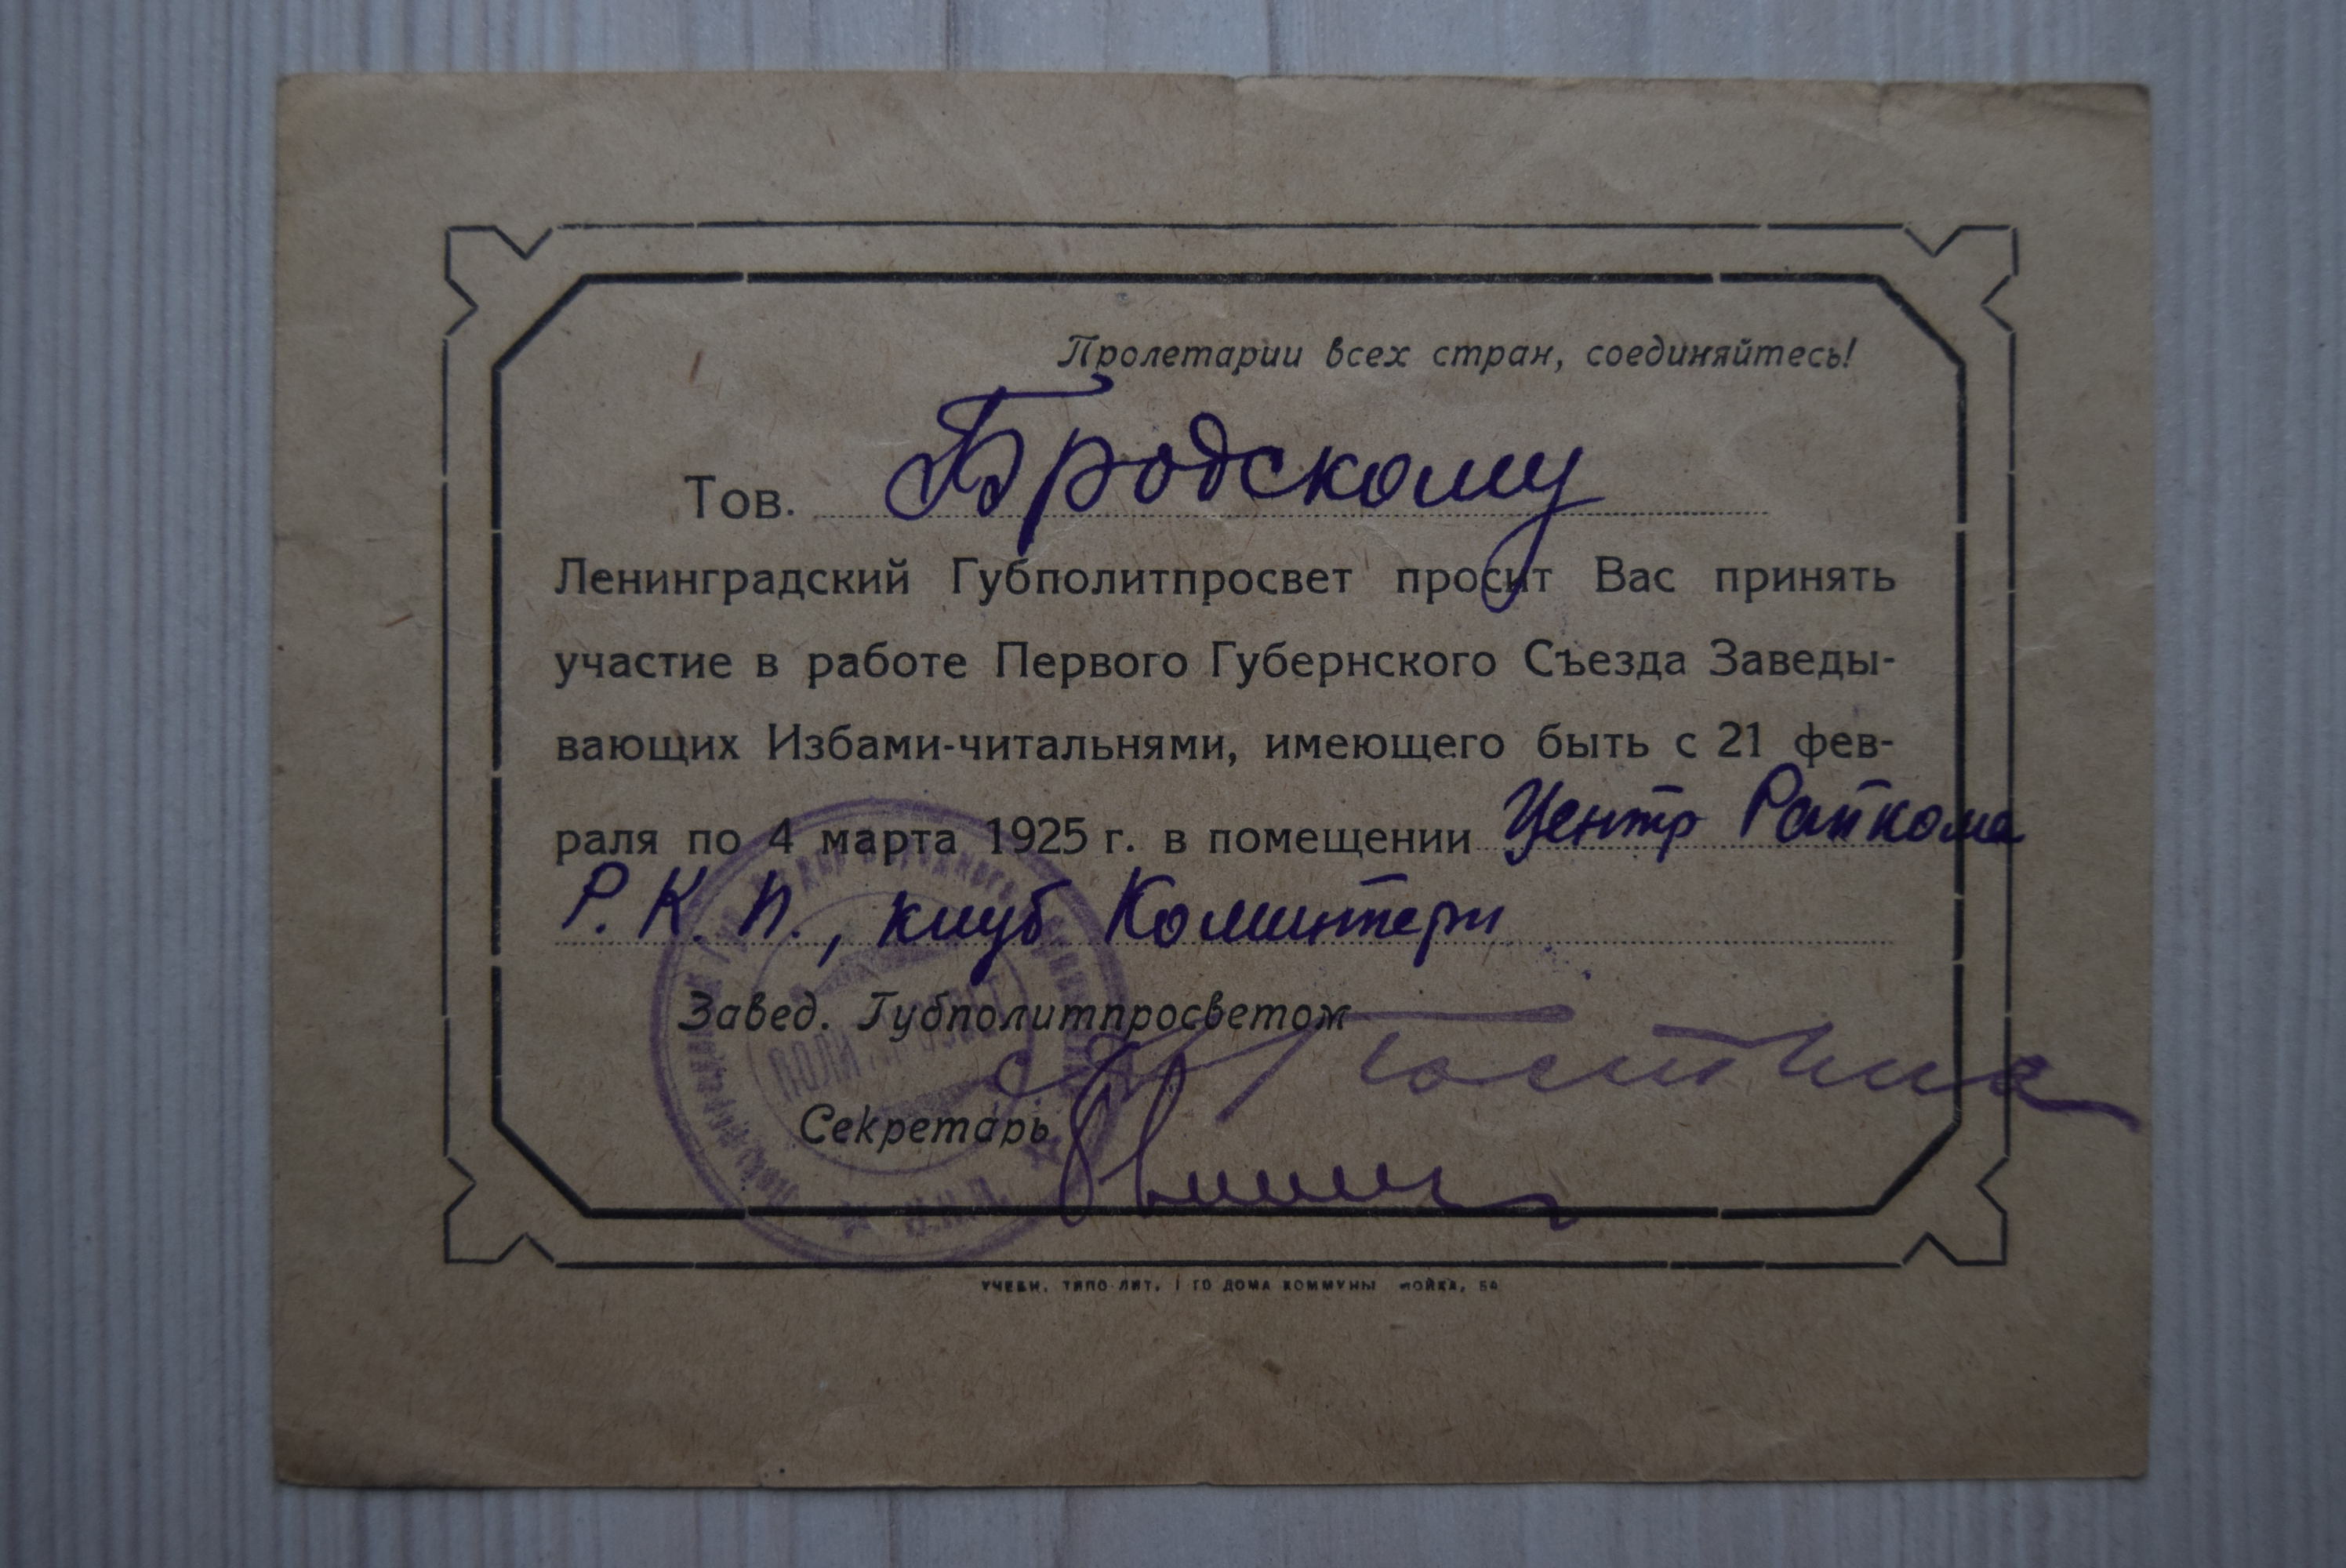 Пролетарии всех стран, соединяйтесь!
Тов. Бродскому
Ленинградский Губполитпросвет просит Вас принять
участие в работе Первого Губернского Съезда Заведы-
вающих Избами-читальнями, имеющего быть с 21 фев-
раля по 4 марта 1925 г. в помещении Центр Райкома
Р. К. П., клуб Коминтерн
Завед. Губполитпросветом
Секретарь
ТИПО-ЛИТ. 1 ГО ДОМА КОММУНЫ